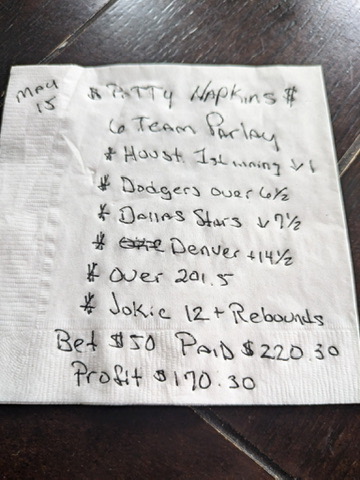 May
15
$ Patty Napkins $
6 Team Parlay
* Houst. 1st inning ↓ 1
* Dodgers over 6½
* Dallas Stars ↓ 7½
* Denver +14½
* Over 201.5
* Jokic 12+ Rebounds
Bet $50 Paid $220.30
Profit $170.30